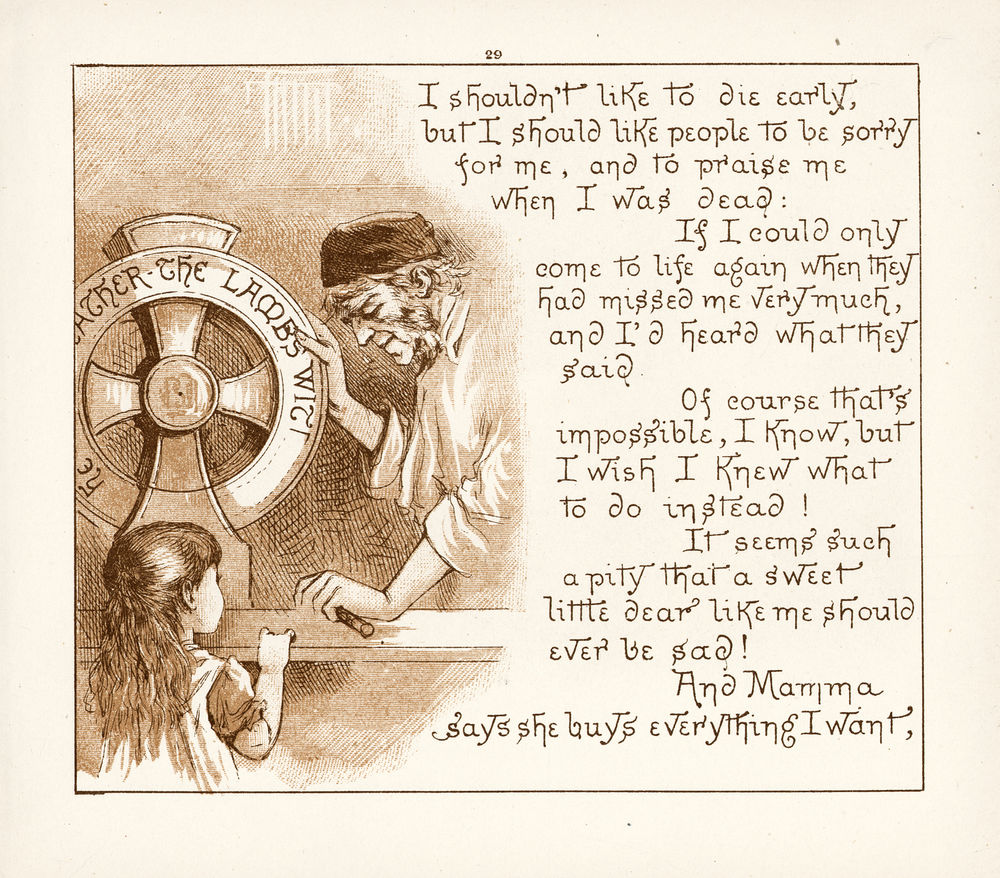 29
I shouldn't like to die early,
but I should like people to be sorry
for me, and to praise me
when I was dead:
If I could only
come to life again when they
had missed me very much,
and I'd heard what they
said.
Of course that's
impossible, I know, but
I wish I knew what
to do instead!
It seems such
a pity that a sweet
little dear like me should
ever be sad!
And Mamma
says she buys everything I want,
ATHER·THE LAMBS WIT